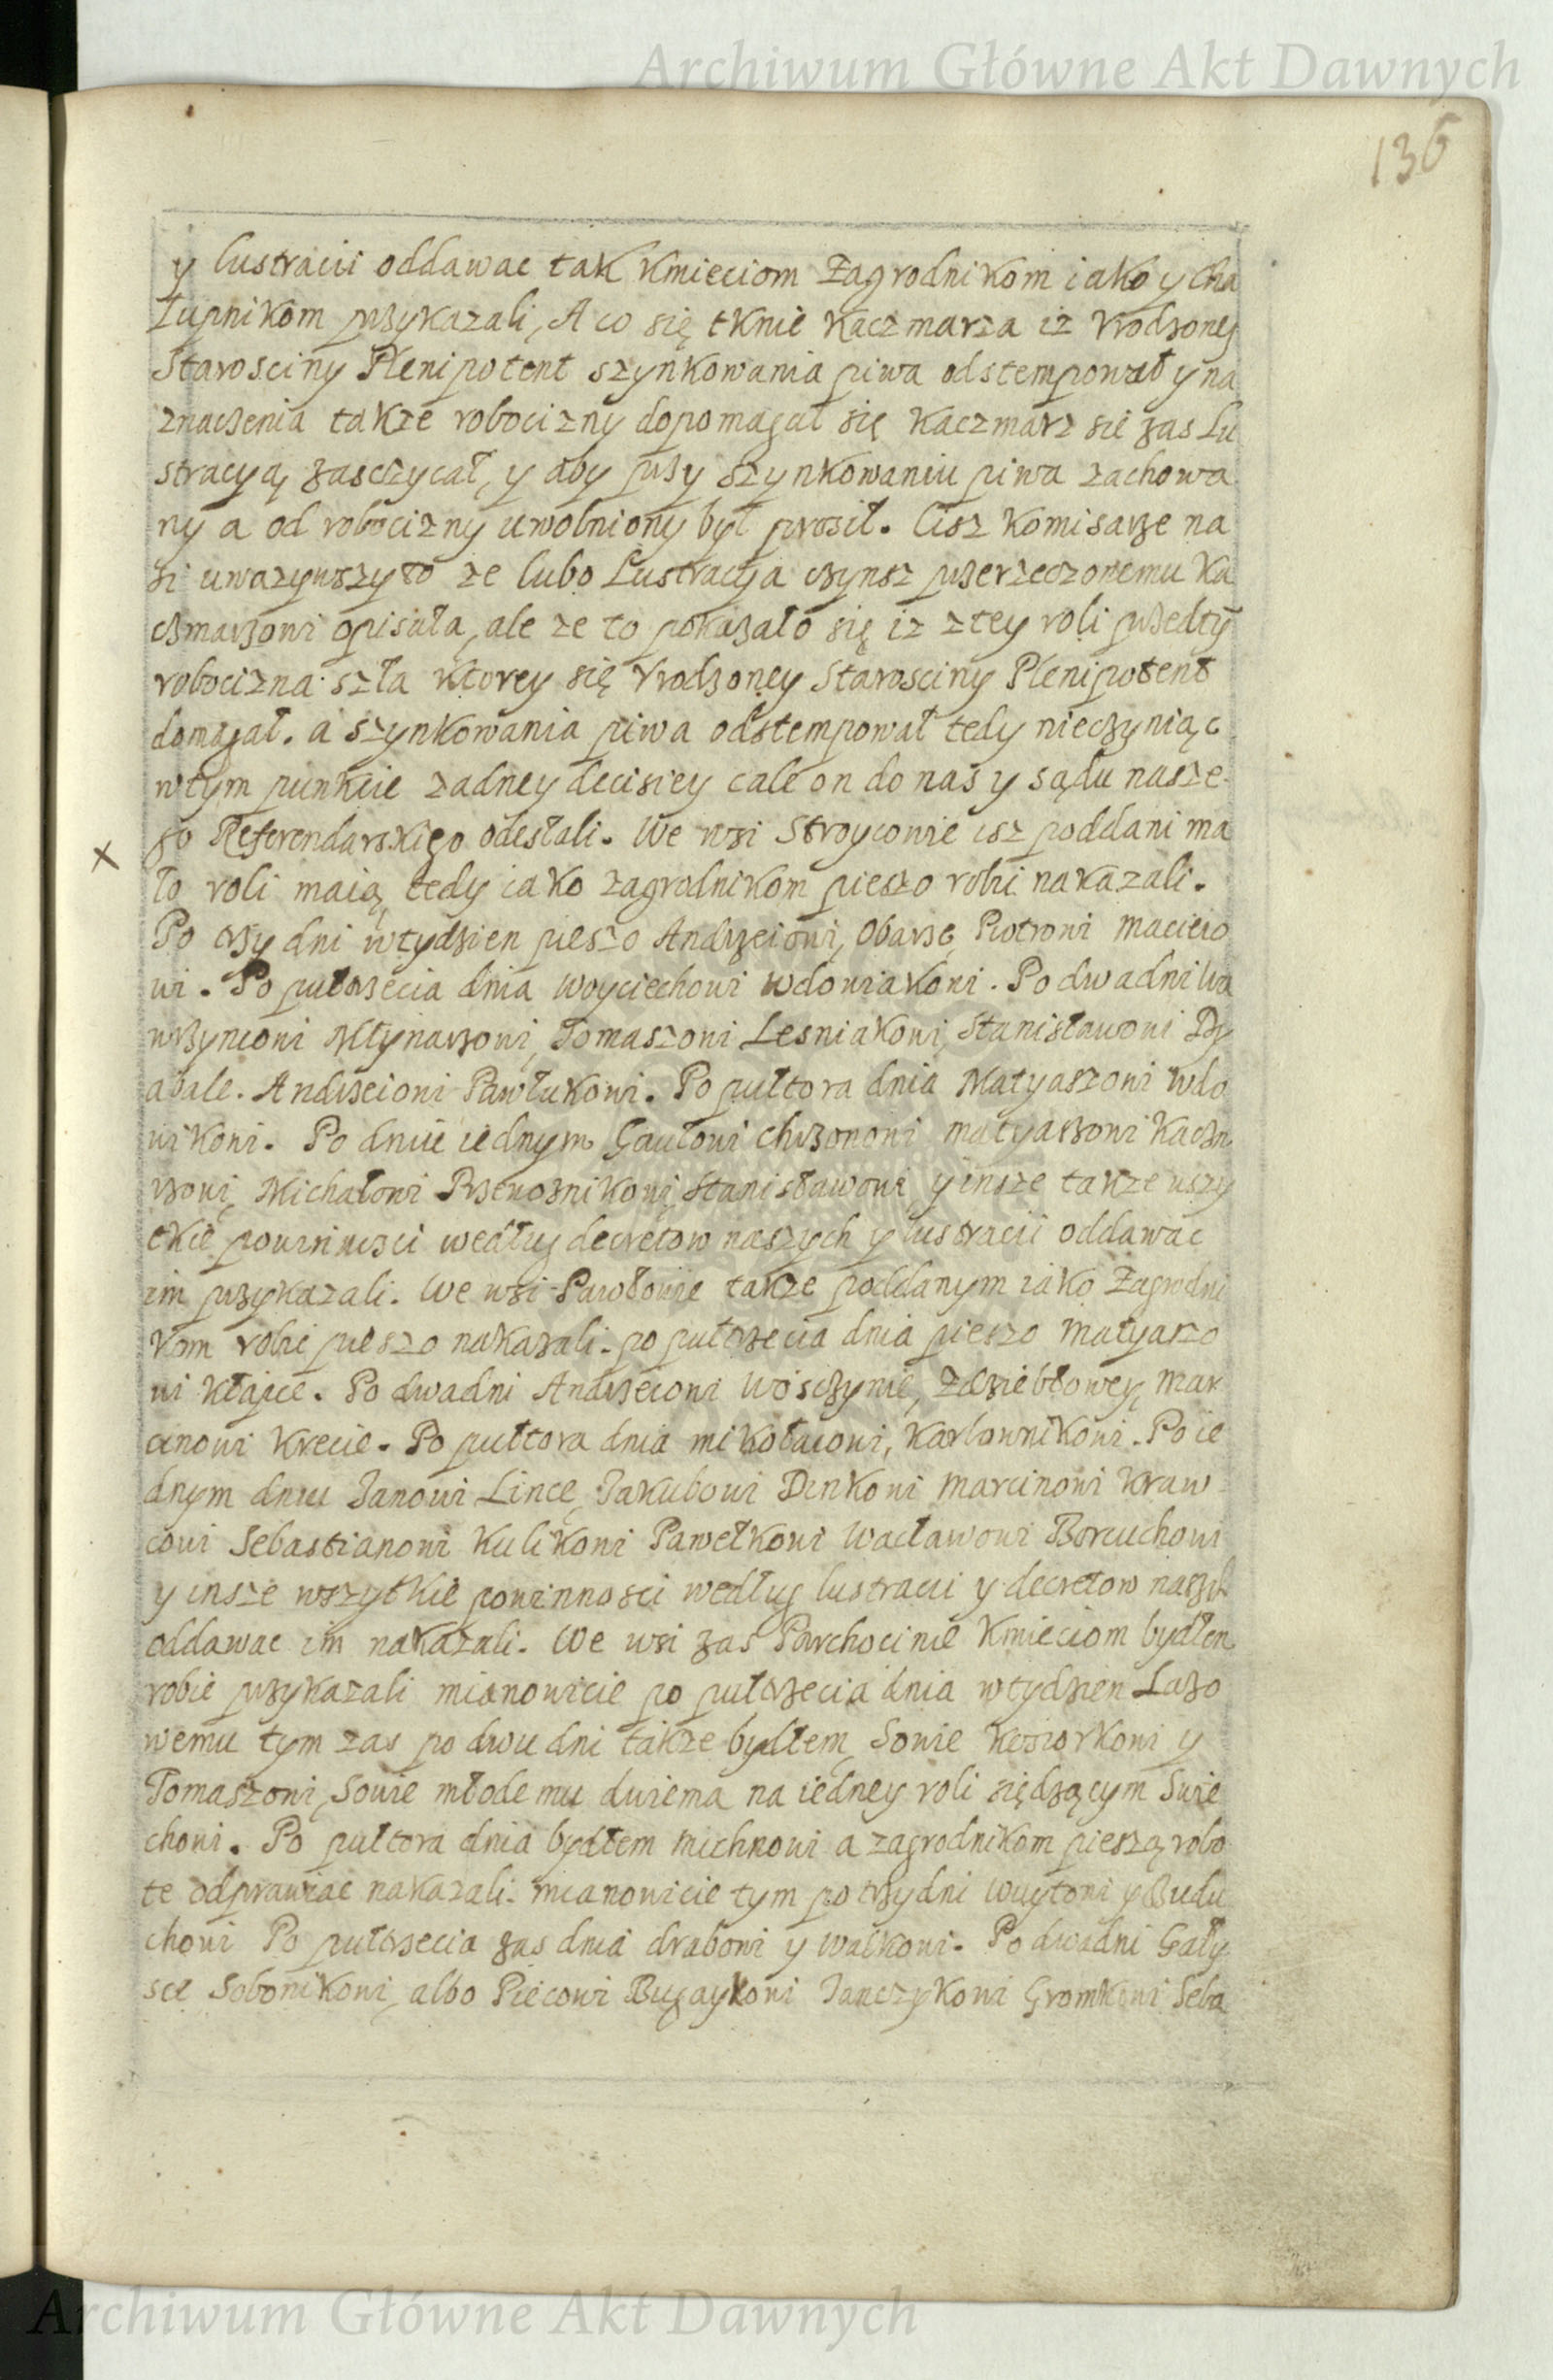 Archiwum Główne Akt Dawnych
136
y lustracii oddawac tak Kmieciom Zagrodnikom iako y cha
łupnikom przykazali, A co się tknie Kaczmarza iz Vrodzoney
Starosciny Plenipotent szynkowania piwa odstempował y na
znaczenia takze robocizny dopomagał się Kaczmarz sie zas Lu
stracyą zasczycał, y aby przy szynkowaniu piwa zachowa
ny a od robocizny uwolniony był prosił. Cisz Komisarze na
si uwazywszy to ze lubo Lustracya czynsz przerzeczonemu Ka
czmarzowi opisała, ale ze to pokazało się iz z tey roli przedty
robocizna szła ktorey się Vrodzoney Starosciny Plenipotent
domagał. a szynkowania piwa odstempował tedy nieczyniąc
w tym punkcie zadney decisiey cale on do nas y sądu nasze
go Referendarskiego odesłali. We wsi Stroycowie isz poddani ma
ło roli maią tedy iako zagrodnikom pieszo robi nakazali.
Po trzy dni w tydzien pieszo Andrzeiowi, Obarze Piotrowi Macieio
wi. Po pułtrzecia dnia Woyciechowi Wdowiakowi. Po dwadni Wa
wrzyncowi Młynarzowi, Tomaszowi Lesniakowi, Stanisławowi
abale. Andrzeiowi Pawlukowi. Po pułtora dnia Matyaszowi Wdo
wikowi. Po dniu iednym Gawłowi chrzonowi matyaszowi Kaczm
rzowi, Michałowi Stanisławowi y insze takze wszy
tkie powinnosci według decretow naszych y lustracii oddawac
im przykazali. We wsi Pawłowie takze poddanym iako Zagrodni
kom robić pieszo nakazali. po pułtrzecia dnia pieszo Matyaszo
wi Kłapce. Po dwadni Andrzeiowi Zdziebłowey, Mar
cinowi Krecie. Po pułtora dnia mikołaiowi, Karbownikowi. Po ie
dnym dniu Janowi Lince, Jakubowi Dinkowi Marcinowi Kraw
cowi Sebastianowi Kulikowi Pawełkowi Wacławowi Borcuchowi
y insze wszytkie powinnosci według lustracii y decretow naszych
oddawac im nakazali. We wsi zas Parchocinie Kmieciom bydłem
robic przykazali mianowicie po pułtrzecia dnia w tydzien Lazo
wemu tym zas po dwu dni takze bydłem, Sowie Koziorkowi y
Tomaszowi, Sowie młodemu dwiema na iedney roli siędzącym Swie
chowi. Po pułtora dnia bydłem Michnowi a zagrodnikom pieszą robo
te odprawiac nakazali. mianowicie tym po trzy dni Wuytowi y Budu
chowi Po pułtrzecia zas dnia drabowi y walkowi. Po dwadni Gały
sce Sobonikowi, albo Piecowi Bugaykowi Janczykowi Gromkowi Seba
Archiwum Główne Akt Dawnych